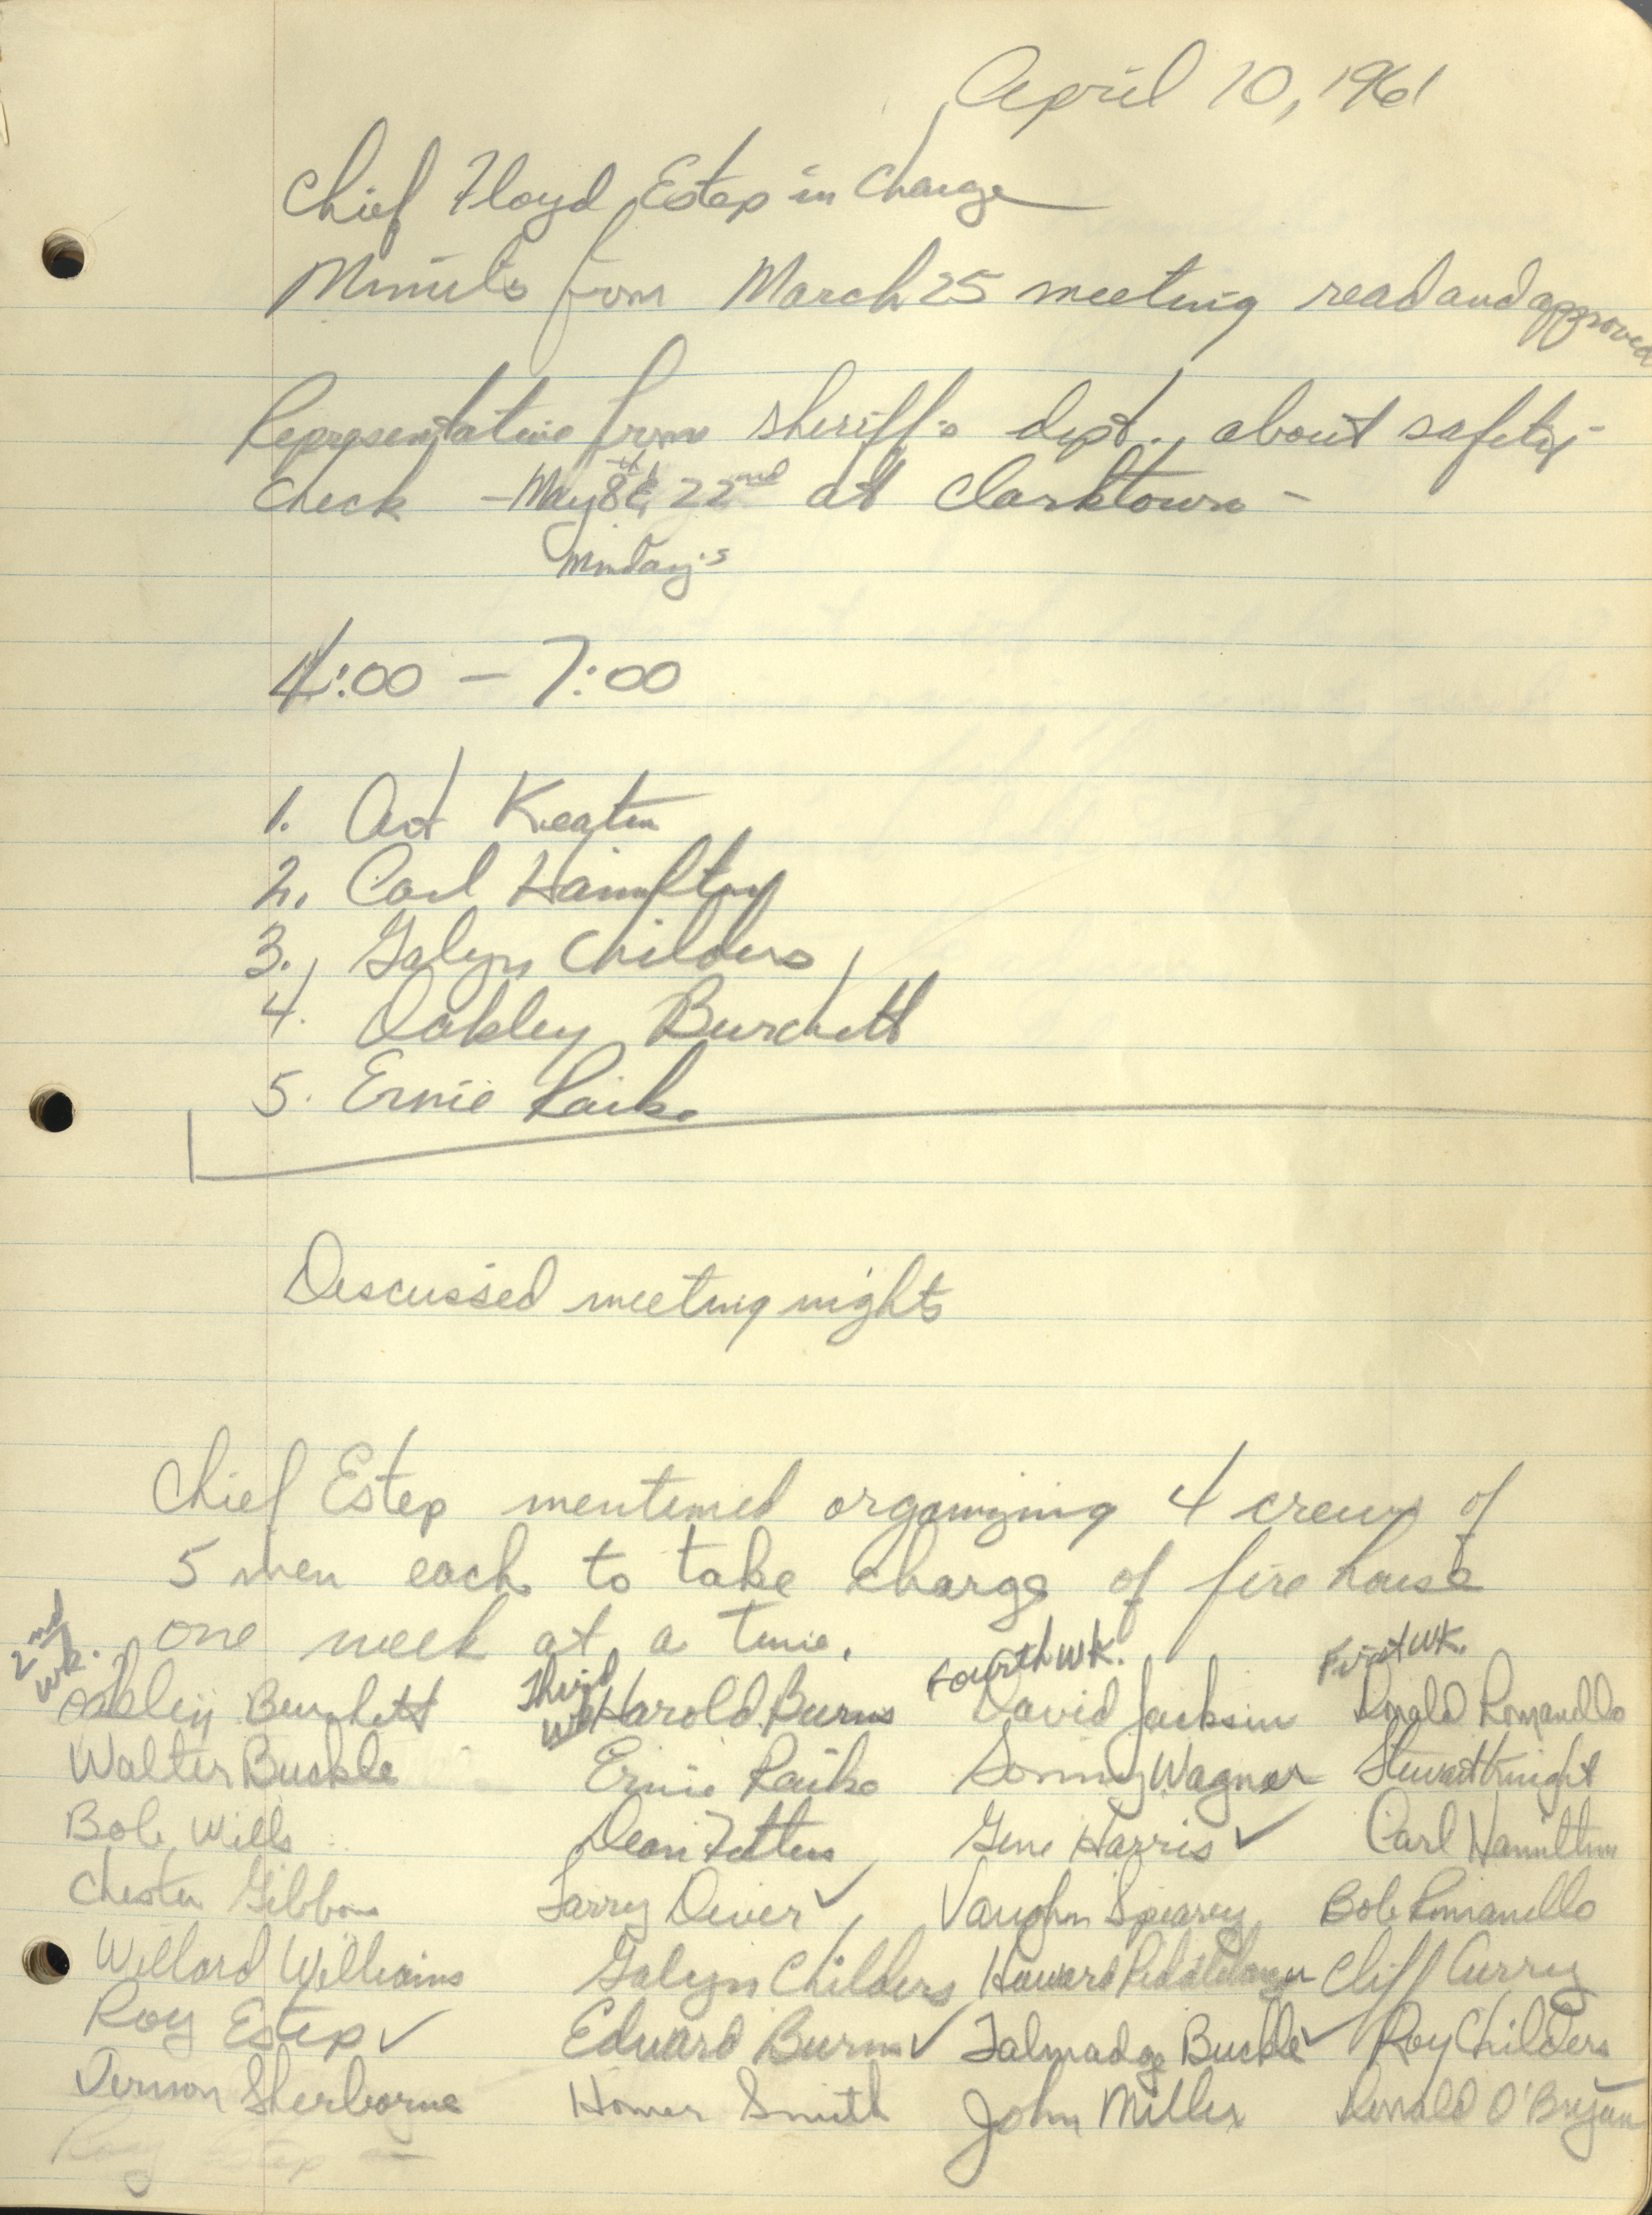 April 10, 1961
Chief Floyd Estep in Charge
Minuts from March 25 meeting read and approved
Representative from sheriff's dept., about safety-
check - May 8th & 22nd at Clarktown -
Monday's
4:00 - 7:00
1. Art Keaton
2. Carl Hamilton
3. Galyn Childers
4. Oakley Burchett
5. Ernie Raike
Discussed meeting nights
Chief Estep mentioned organizing 4 crews of
5 men each to take charge of fire house
one week at a time.
2nd wk. Third wk Fourth WK. First WK.
Oakley Burchett Harold Burns David Jackson Ronald Romanello
Walter Buckle Ernie Raike Sonny Wagner Stewart Knight
Bob Wills Dean Gene Harris ✓ Carl Hamilton
Chester Gibbons Larry Diver ✓ Vaughn Spearey Bob Romanello
Willard Williams Galyn Childers Howard Cliff Curry
Roy Estep ✓ Edward Burns ✓ Talmadge Buckle ✓ Roy Childers
Vernon Sherborne Homer Smith John Miller Ronald O'Bryan
Roy Estep -